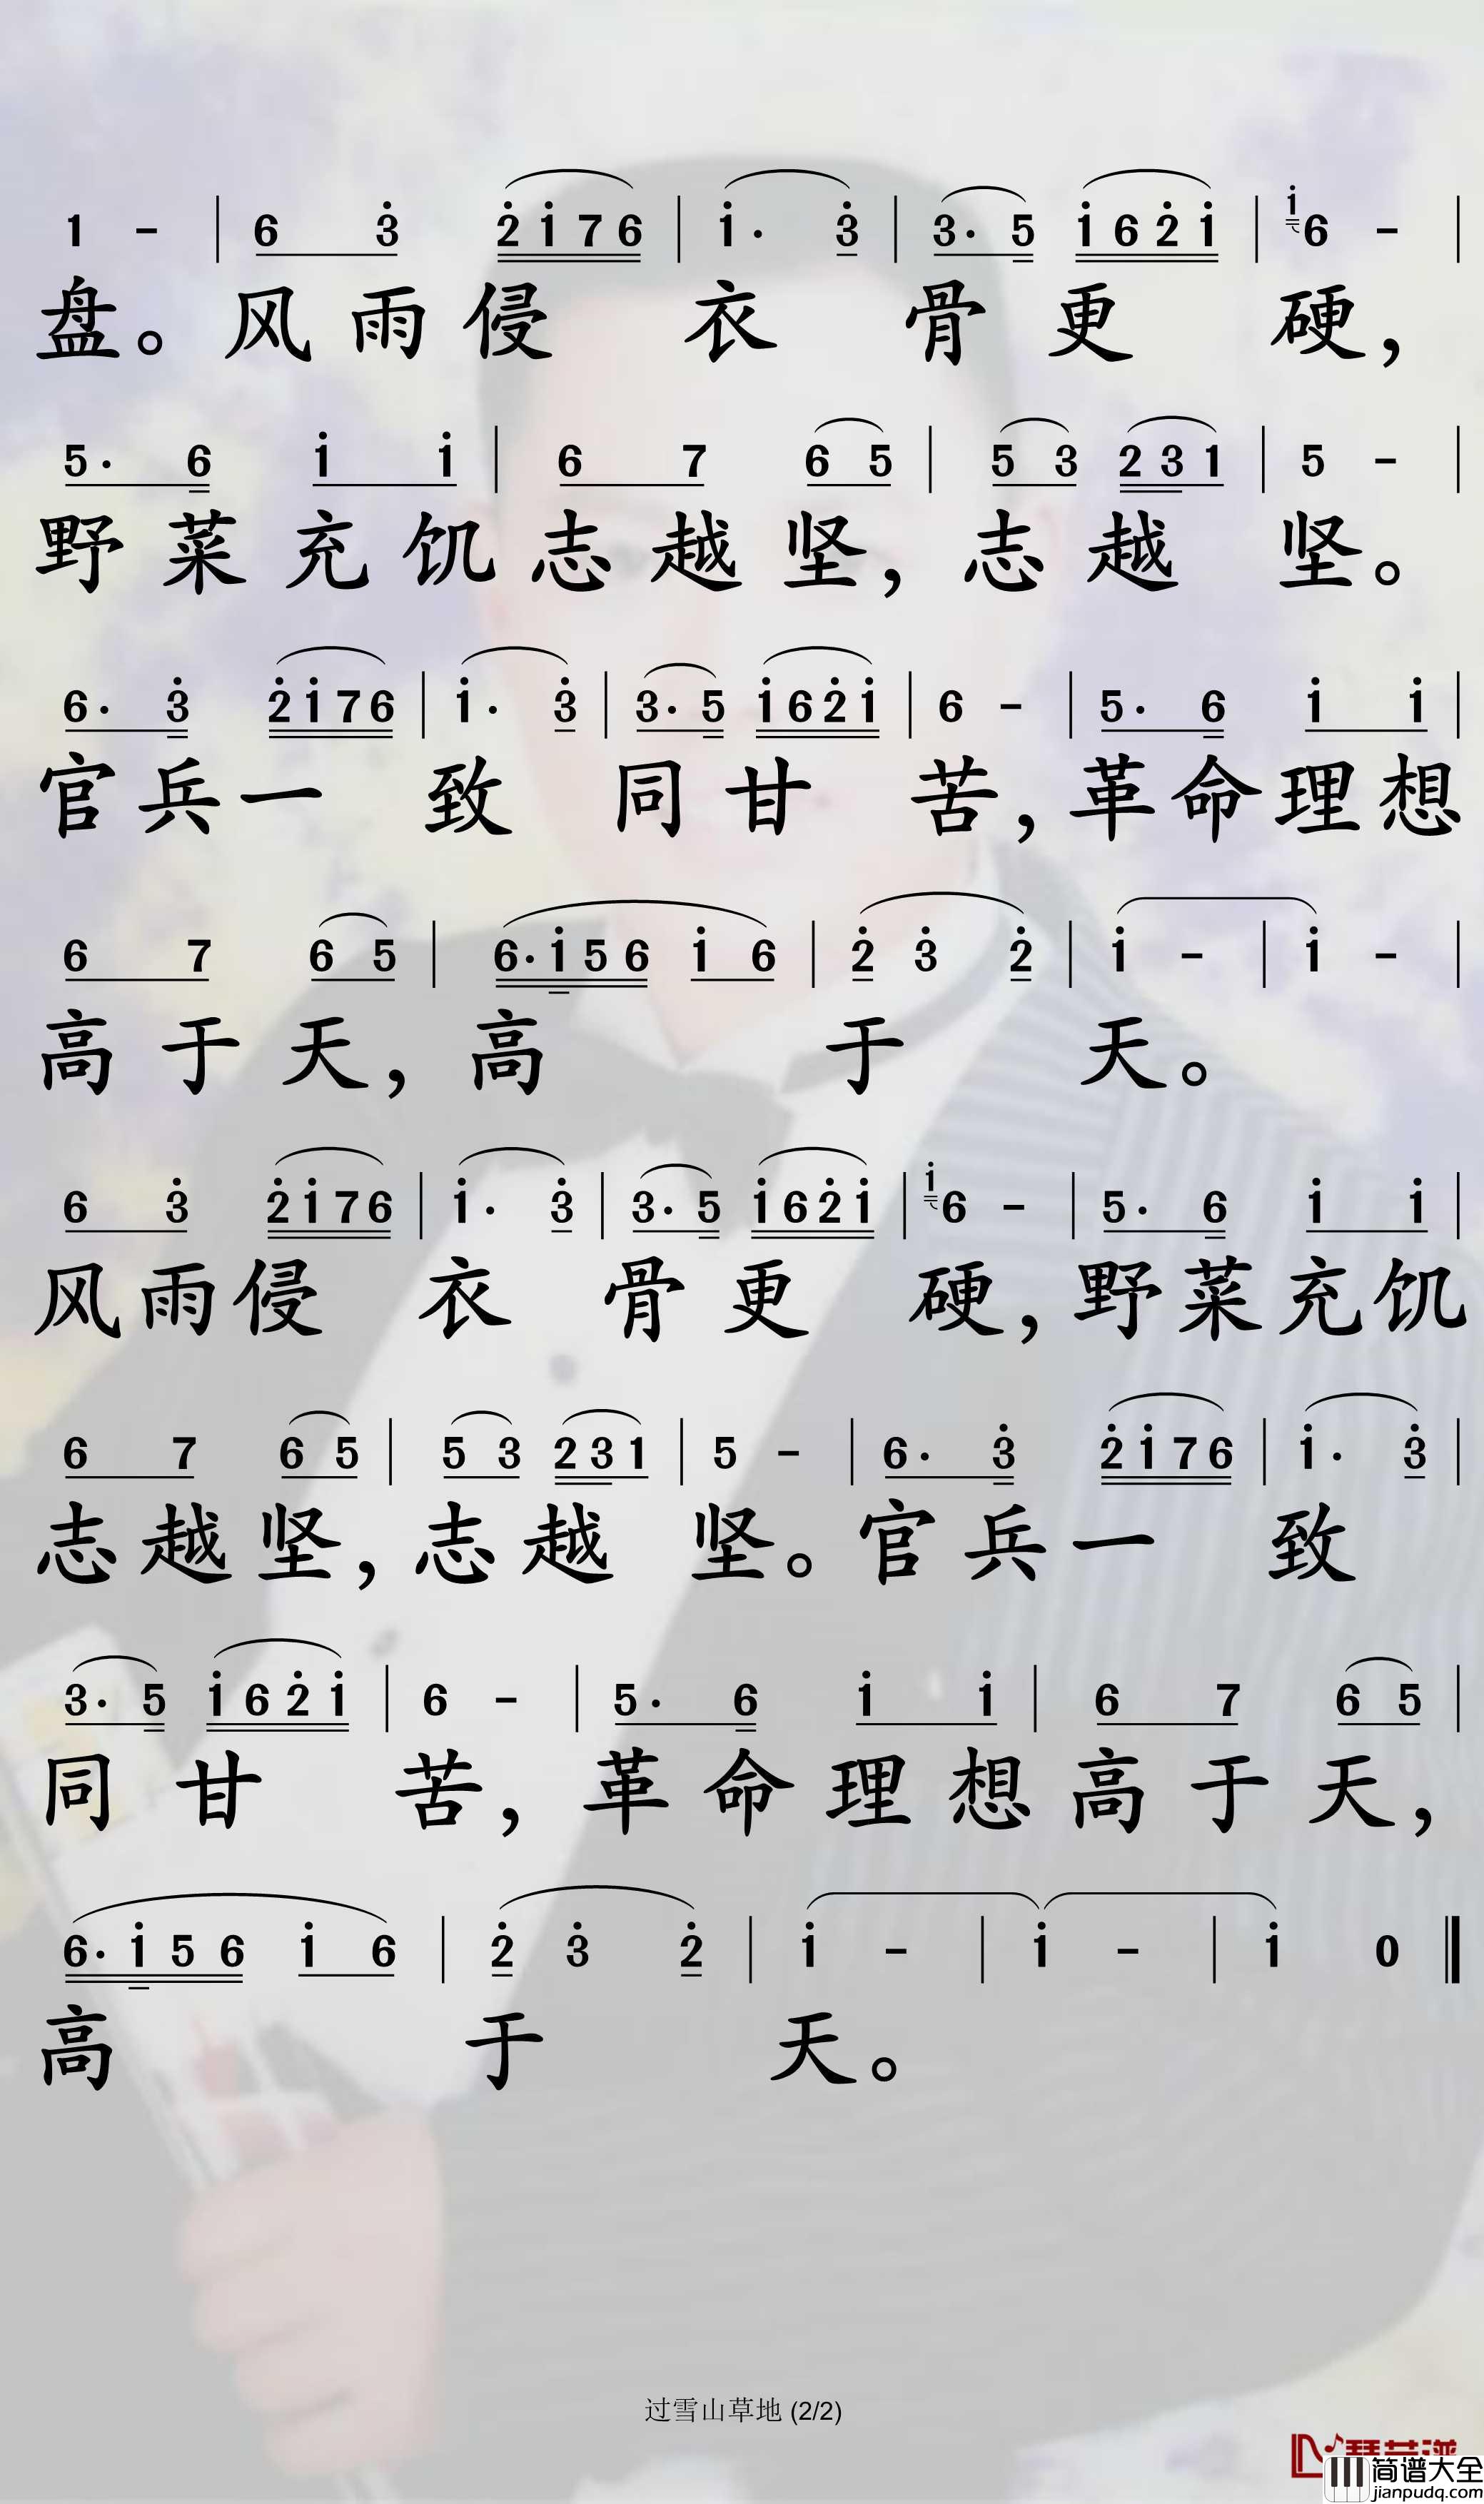 1 - | 6 3̇ 2̇ 1̇ 7 6 | 1̇· 3̇ | 3· 5 1̇ 6 2̇ 1̇ | 1̇ 6 - |
盘。风雨侵 衣 骨更 硬，
5· 6 1̇ 1̇ | 6 7 6 5 | 5 3 2 3 1 | 5 - |
野菜充饥志越坚，志越 坚。
6· 3̇ 2̇ 1̇ 7 6 | 1̇· 3̇ | 3· 5 1̇ 6 2̇ 1̇ | 6 - | 5· 6 1̇ 1̇ |
官兵一 致 同甘 苦，革命理想
6 7 6 5 | 6· 1̇ 5 6 1̇ 6 | 2̇ 3̇ 2̇ | 1̇ - | 1̇ - |
高于天，高 于 天。
6 3̇ 2̇ 1̇ 7 6 | 1̇· 3̇ | 3· 5 1̇ 6 2̇ 1̇ | 1̇ 6 - | 5· 6 1̇ 1̇ |
风雨侵 衣 骨更 硬，野菜充饥
6 7 6 5 | 5 3 2 3 1 | 5 - | 6· 3̇ 2̇ 1̇ 7 6 | 1̇· 3̇ |
志越坚，志越 坚。官兵一 致
3· 5 1̇ 6 2̇ 1̇ | 6 - | 5· 6 1̇ 1̇ | 6 7 6 5 |
同甘 苦，革命理想高于天，
6· 1̇ 5 6 1̇ 6 | 2̇ 3̇ 2̇ | 1̇ - | 1̇ - | 1̇ 0 ‖
高 于 天。
过雪山草地 (2/2)
简谱大全
jianpudq.com